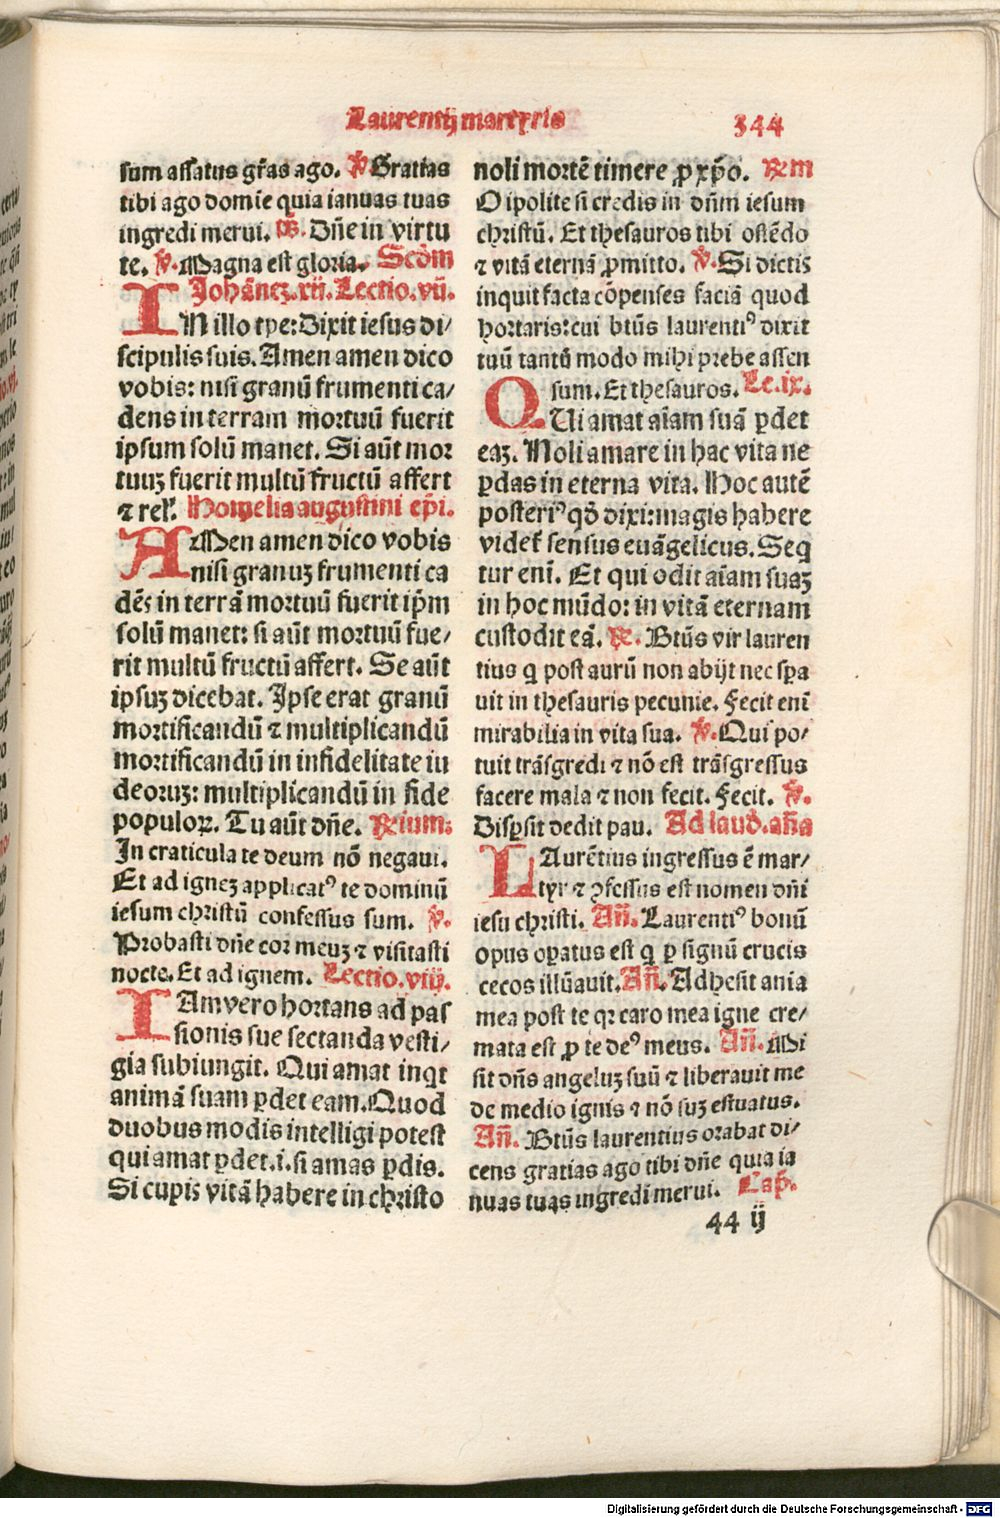 Laurentij martyris 344
sum assatus gr̄as ago. ℣ Gratias
tibi ago domīe quia ianuas tuas
ingredi merui. Dn̄e in virtu
te. ℣. Magna est gloria. Scd̄m
Johānez. xij. Lectio. vij.
IN illo tpe: Dixit iesus di/
scipulis suis. Amen amen dico
vobis: nisi granū frumenti ca/
dens in terram mortuū fuerit
ipsum solū manet. Si aūt mor
tuuꝫ fuerit multū fructū affert
⁊ rel'. Homelia augustini ep̄i.
AMen amen dico vobis
nisi granuꝫ frumenti ca
dēs in terrā mortuū fuerit ip̄m
solū manet: si aūt mortuū fue/
rit multū fructū affert. Se aūt
ipsuꝫ dicebat. Ipse erat granū
mortificandū ⁊ multiplicandū
mortificandū in infidelitate iu
deoruꝫ: multiplicandū in fide
populoꝝ. Tu aūt dn̄e. ℟ium:
In craticula te deum nō negaui.
Et ad igneꝫ applicatꝰ te dominū
iesum christū confessus sum. ℣.
Probasti dn̄e cor meuꝫ ⁊ visitasti
nocte. Et ad ignem. Lectio. viij.
IAm vero hortans ad pas
sionis sue sectanda vesti/
gia subiungit. Qui amat inqt
animā suam ꝑdet eam. Quod
duobus modis intelligi potest
qui amat ꝑdet. i. si amas ꝑdis.
Si cupis vitā habere in christo
noli mortē timere ꝓ xp̄o. ℟m
O ipolite si credis in dn̄m iesum
christū. Et thesauros tibi ostēdo
⁊ vitā eternā ꝓmitto. ℣. Si dictis
inquit facta cōpenses faciā quod
hortaris: cui bt̄us laurentiꝰ dixit
tuū tantū modo mihi prebe assen
sum. Et thesauros. Le. ix.
QUi amat aīam suā ꝑdet
eaꝫ. Noli amare in hac vita ne
ꝑdas in eterna vita. Hoc autē
posteriꝰ qd̄ dixi: magis habere
videt̄ sensus euāgelicus. Seq
tur enī. Et qui odit aīam suaꝫ
in hoc mūdo: in vitā eternam
custodit eā. ℟. Bt̄us vir lauren
tius q post aurū non abijt nec sꝑa
uit in thesauris pecunie. Fecit enī
mirabilia in vita sua. ℣. Qui po/
tuit trāsgredi ⁊ nō est trāsgressus
facere mala ⁊ non fecit. Fecit. ℣.
Disꝑsit dedit pau. Ad laud̄. an̄a
LAurētius ingressus ē mar/
tyr ⁊ ꝯfessus est nomen dn̄i
iesu christi. An̄. Laurentiꝰ bonū
opus oꝑatus est q ꝑ signū crucis
cecos illūauit. An̄. Adhesit ania
mea post te qꝛ caro mea igne cre/
mata est ꝓ te deꝰ meus. An̄. Mi
sit dn̄s angeluꝫ suū ⁊ liberauit me
de medio ignis ⁊ nō suꝫ estuatus.
An̄. Bt̄us laurentius orabat di/
cens gratias ago tibi dn̄e quia ia
nuas tuas ingredi merui. Cap̄.
44 ij
Digitalisierung gefördert durch die Deutsche Forschungsgemeinschaft - DFG